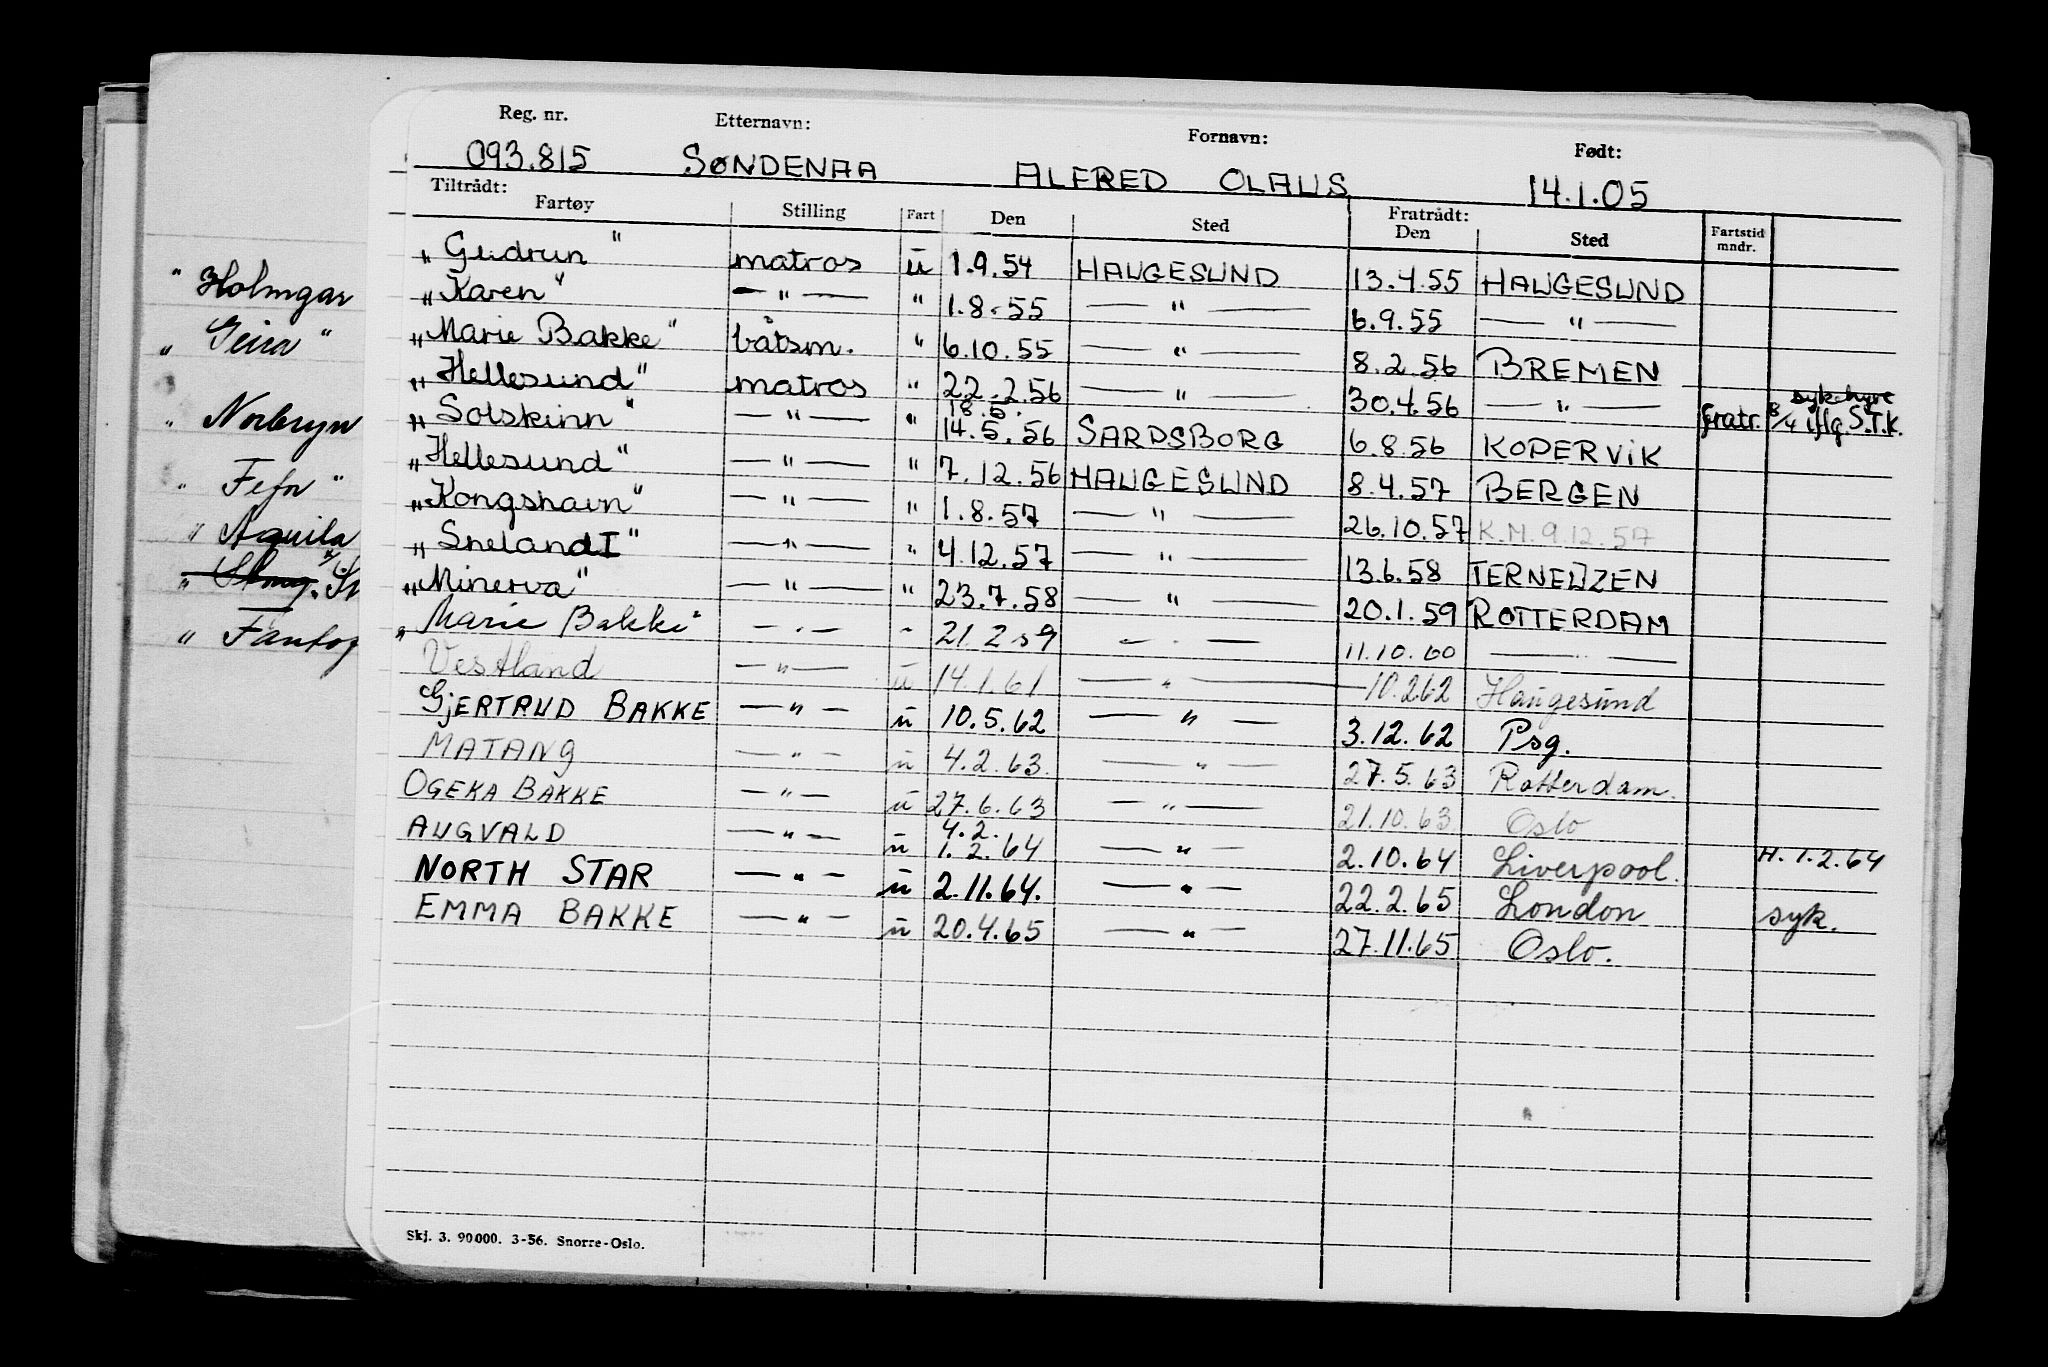 Reg. nr. Etternavn: Fornavn: Født:
093.815 SØNDENAA ALFRED OLAUS 14.1.05
Tiltrådt: Fratrådt:
Fartøy Stilling Fart Den Sted Den Sted Fartstid mndr.
„Gudrun" matros ū 1.9.54 HAUGESUND 13.4.55 HAUGESUND
„Karen" — " — " 1.8.55 — " — 6.9.55 — " —
„Marie Bakke" båtsm. " 6.10.55 — " — 8.2.56 BREMEN
„Hellesund" matros " 22.2.56 — " — 30.4.56 — " — fratr. 8/4 iflg. S.T.K. syk.hyre
18.5.
„Solskinn" — " — " 14.5.56 SARPSBORG 6.8.56 KOPERVIK
„Hellesund" — " — " 7.12.56 HAUGESUND 8.4.57 BERGEN
„Kongshavn" — " — " 1.8.57 — " — 26.10.57 K.M. 9.12.57
„Sneland I" — " — " 4.12.57 — " — 13.6.58 TERNEUZEN
„Minerva" — " — " 23.7.58 — " — 20.1.59 ROTTERDAM
„Marie Bakke" — " — " 21.2.59 — " — 11.10.60 — " —
Vestland — " — ū 14.1.61 — " — 10.2.62 Haugesund
GJERTRUD BAKKE — " — ū 10.5.62 — " — 3.12.62 Psg.
MATANG — " — ū 4.2.63 — " — 27.5.63 Rotterdam.
OGEKA BAKKE — " — ū 27.6.63 — " — 21.10.63 Oslo
4.2.
AUGVALD — " — ū 1.2.64 — " — 2.10.64 Liverpool. H. 1.2.64
NORTH STAR — " — ū 2.11.64. — " — 22.2.65 London syk.
EMMA BAKKE — " — ū 20.4.65 — " — 27.11.65 Oslo.
Skj. 3. 90000. 3-56. Snorre-Oslo.
" Holmgar
„ Geira "
„ Norbryn
" Fefor "
" Aquila
" Fantof